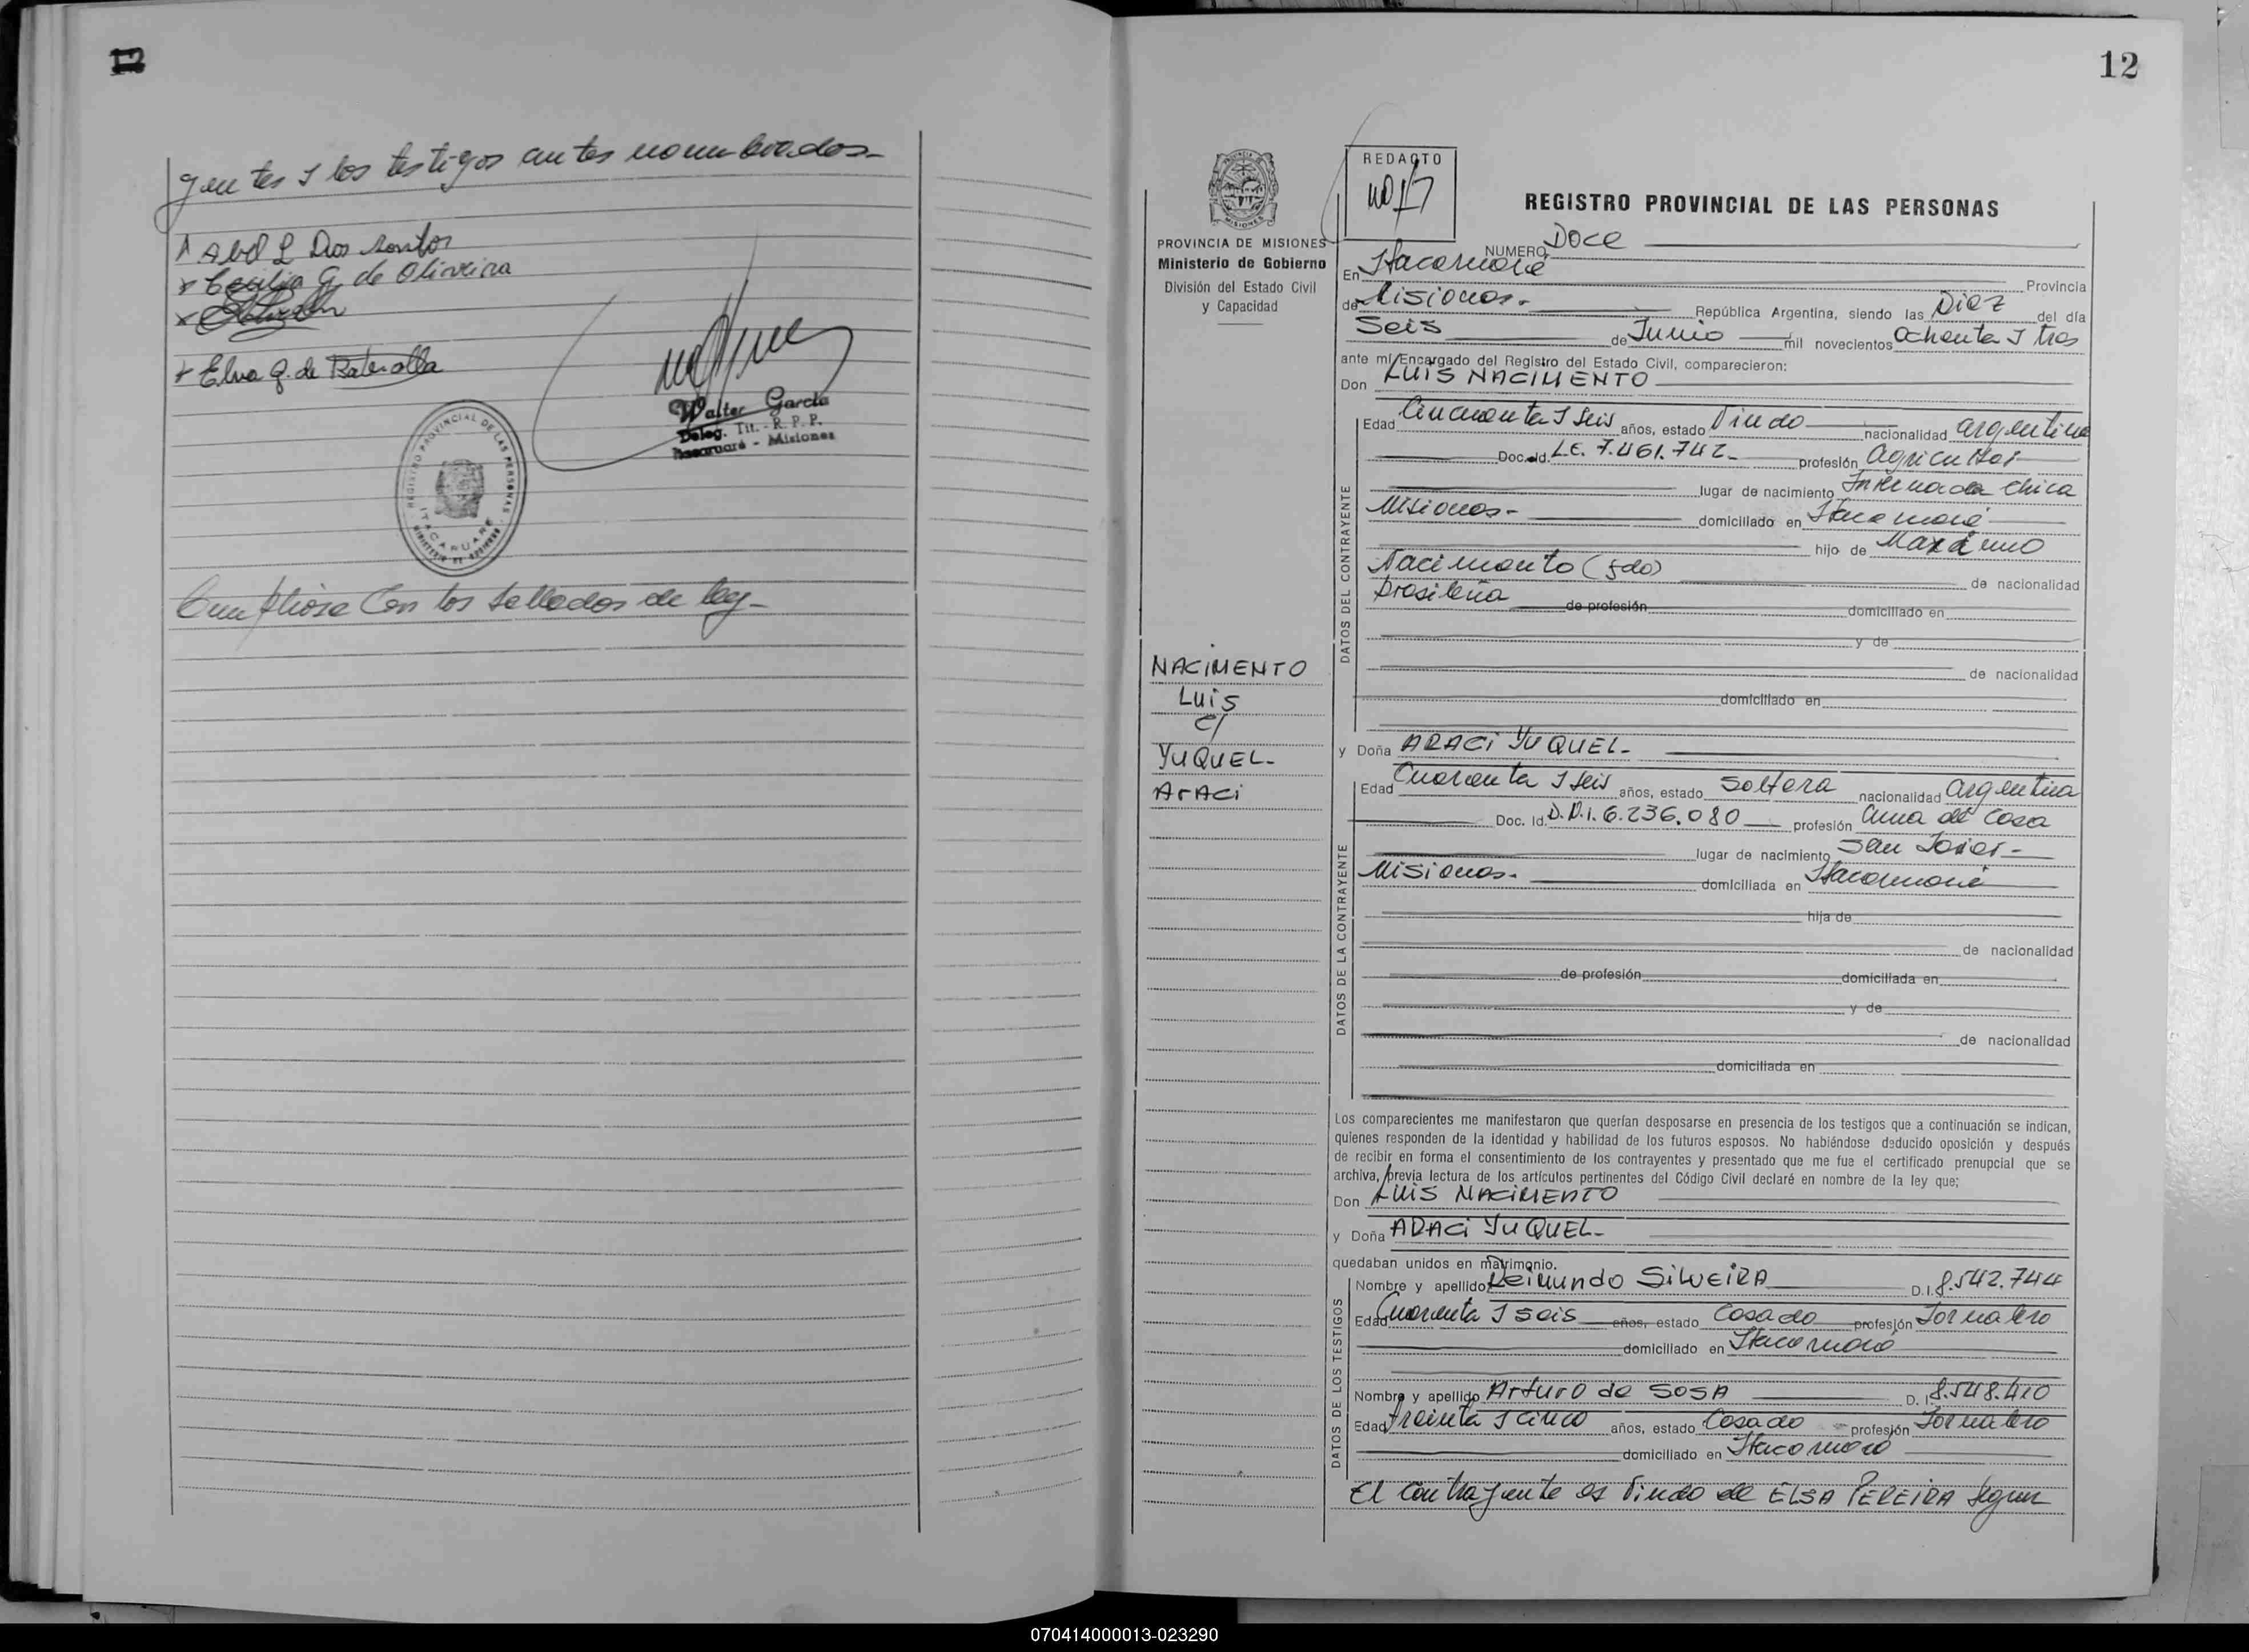 gentes y los testigos antes nombrados-
Abel L Dos Santos
x Cecilia G de Oliveira
x
+ Elva G. de
Walter García
Deleg. Tit. - R. P. P.
Itacaruaré - Misiones
REGISTRO PROVINCIAL DE LAS PERSONAS
ITACARUARE
MINISTERIO DE GOBIERNO
Cumpliose con los sellados de ley-
12
PROVINCIA DE MISIONES
Ministerio de Gobierno
División del Estado Civil
y Capacidad
NACIMENTO
Luis
c/
YUQUEL-
ArACi
REDACTO
REGISTRO PROVINCIAL DE LAS PERSONAS
NUMERO Doce
En Itacaruaré Provincia
de Misiones. República Argentina, siendo las Diez del día
Seis de Junio mil novecientos Ochenta y tres
ante mí Encargado del Registro del Estado Civil, comparecieron:
Don LUIS NACIMENTO
DATOS DEL CONTRAYENTE
Edad Cincuenta y seis años, estado Viudo nacionalidad argentina
Doc. Id. L.E. 7.461.742- profesión Agricultor
lugar de nacimiento Invernada Chica
Misiones- domiciliado en Itacaruaré
hijo de Maximo
Nacimento (fdo) de nacionalidad
brasileña de profesión domiciliado en
y de
de nacionalidad
domiciliado en
y Doña ARACi YUQUEL-
DATOS DE LA CONTRAYENTE
Edad Cuarenta y seis años, estado Soltera nacionalidad argentina
Doc. Id. D.N.I. 6.236.080 profesión ama de casa
lugar de nacimiento San Javier-
Misiones- domiciliada en Itacaruaré
hija de
de nacionalidad
de profesión domiciliada en
y de
de nacionalidad
domiciliada en
Los comparecientes me manifestaron que querían desposarse en presencia de los testigos que a continuación se indican,
quienes responden de la identidad y habilidad de los futuros esposos. No habiéndose deducido oposición y después
de recibir en forma el consentimiento de los contrayentes y presentado que me fue el certificado prenupcial que se
archiva, previa lectura de los artículos pertinentes del Código Civil declaré en nombre de la ley que;
Don LUIS NACIMENTO
y Doña ARACi YUQUEL-
quedaban unidos en matrimonio.
DATOS DE LOS TESTIGOS
Nombre y apellido Reimundo SILVEIRA D.I. 8.542.744
Edad Cuarenta y seis años, estado Casado profesión Jornalero
domiciliado en Itacaruaré
Nombre y apellido Arturo de SOSA D. I. 8.548.410
Edad Treinta y cinco años, estado Casado profesión Jornalero
domiciliado en Itacaruaré
El contrayente es viudo de ELSA PEREIRA segun
070414000013-023290